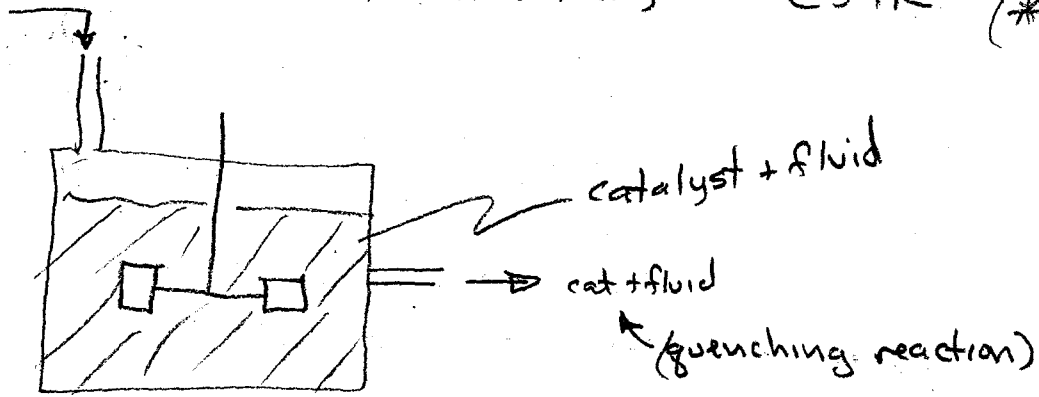 CSTR (*
catalyst + fluid
cat + fluid
(quenching reaction)